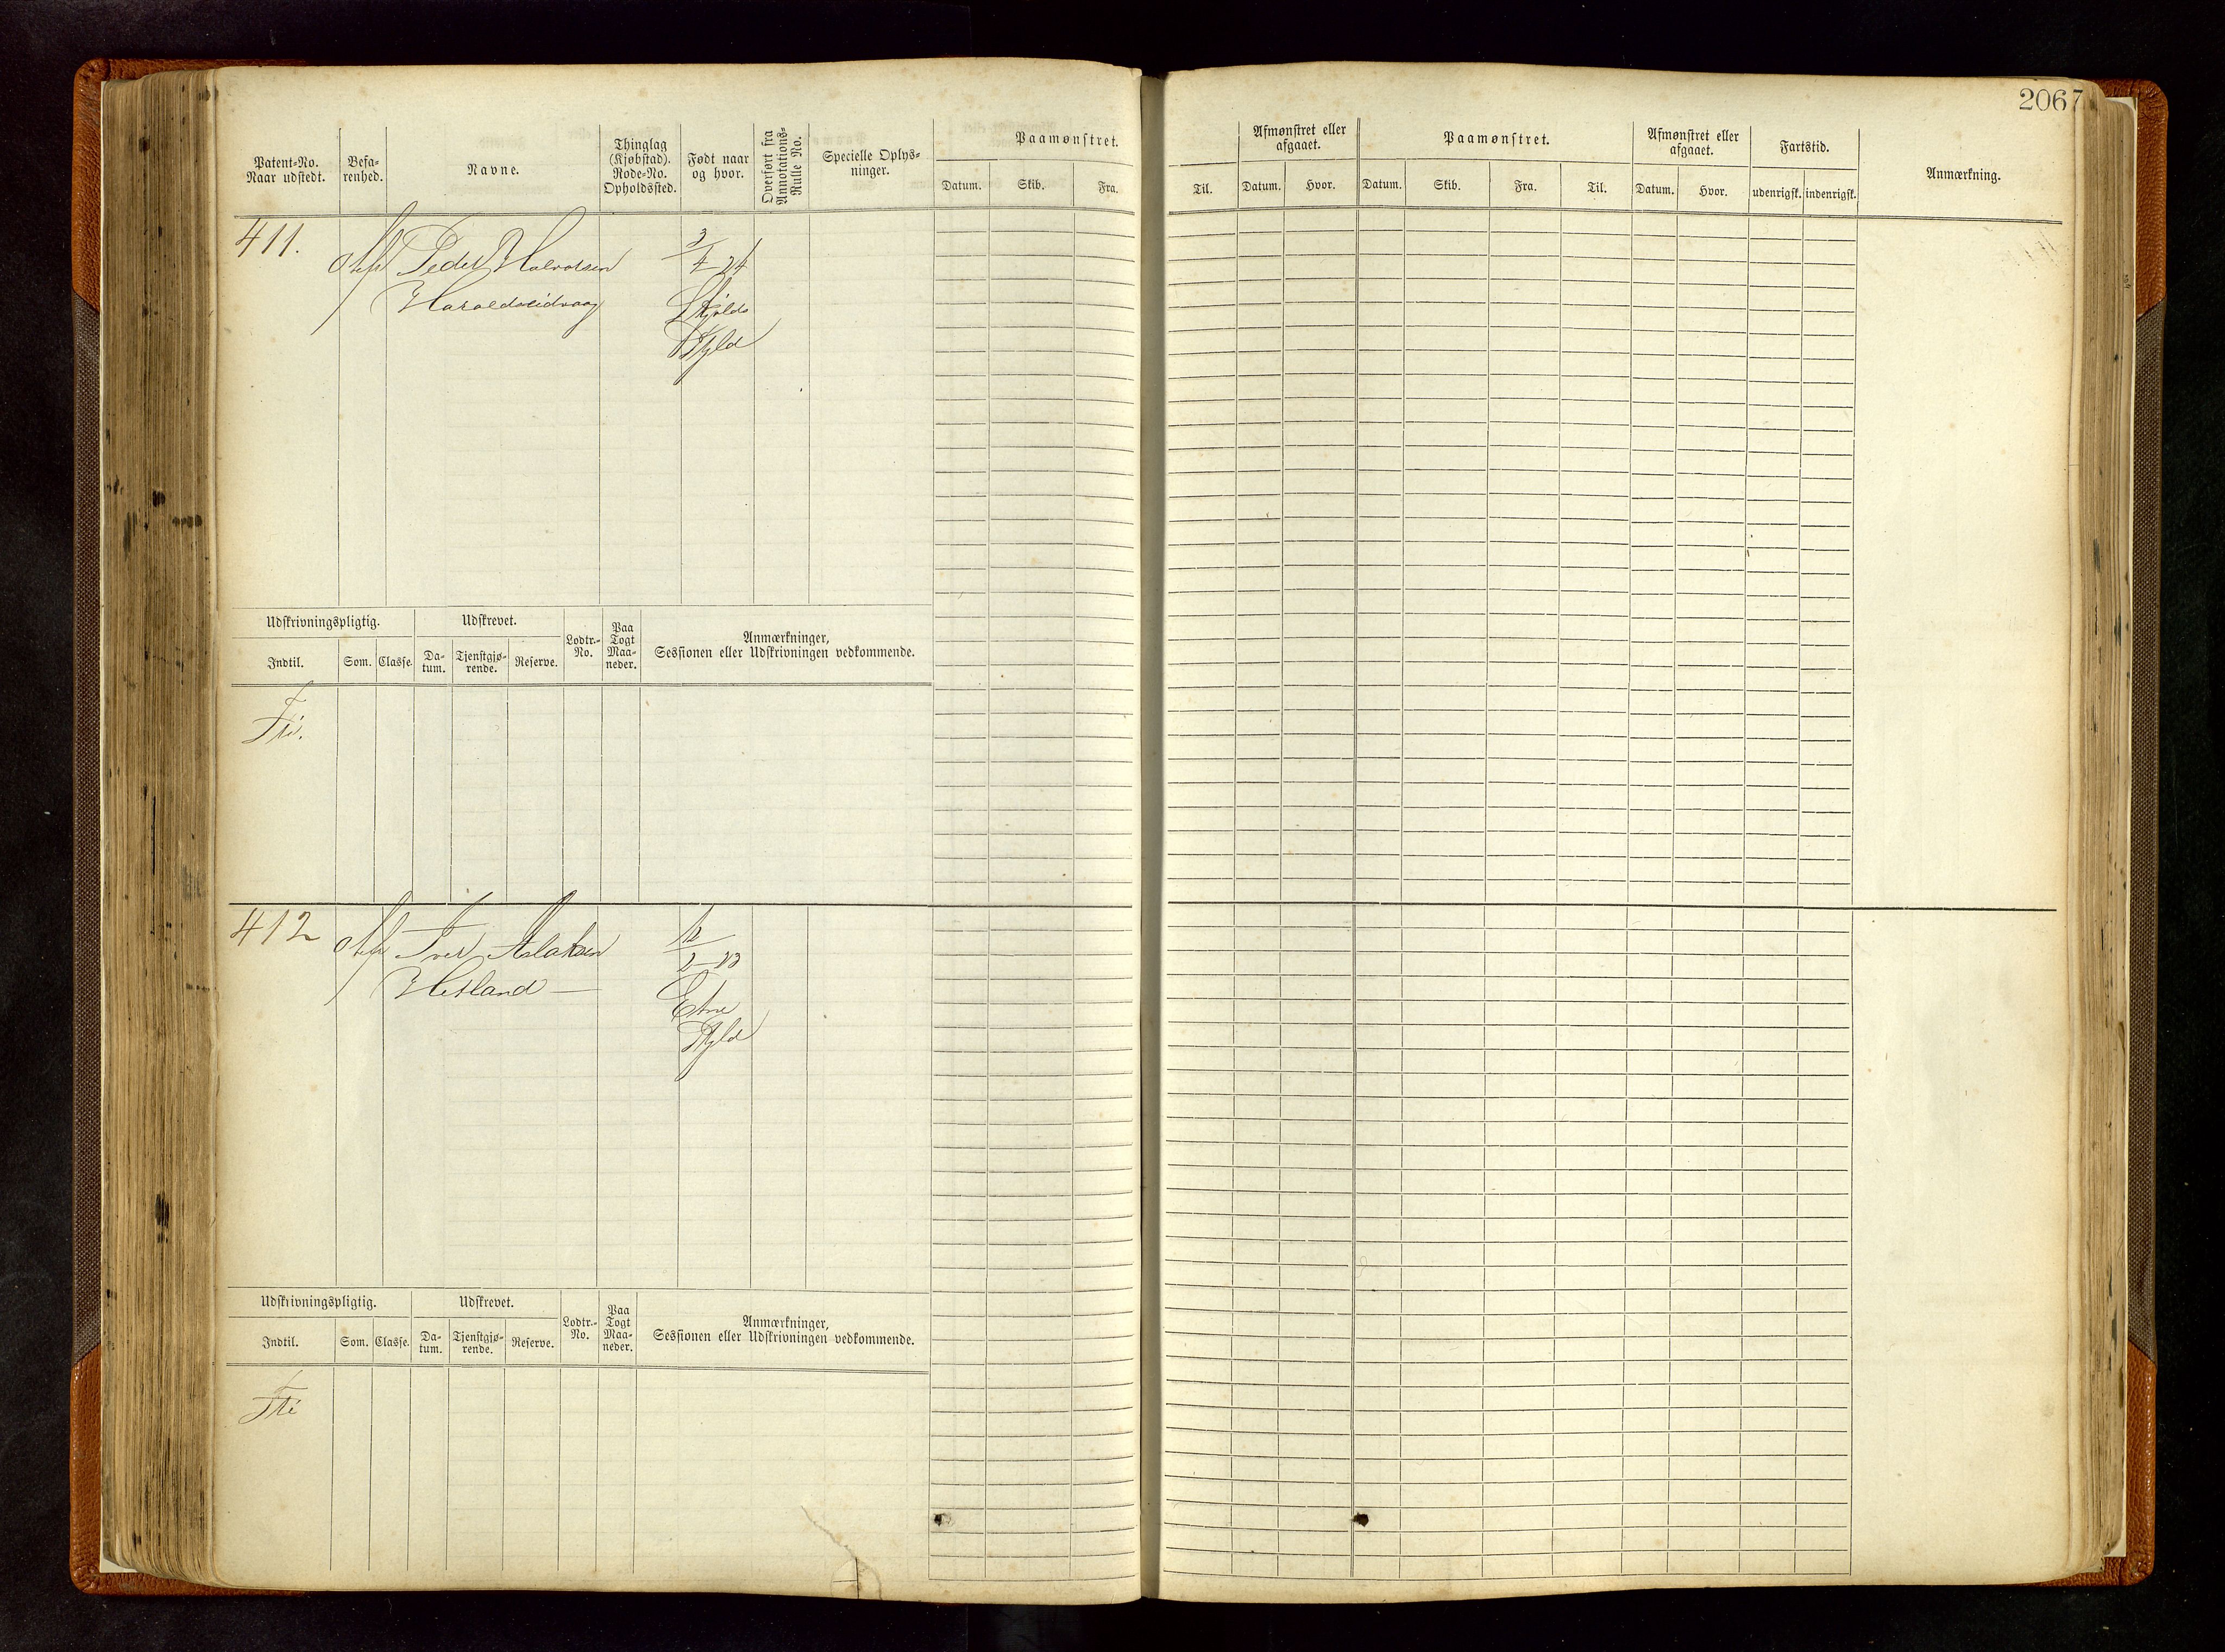 2067
Patent-No.
Naar udstedt.
Befa-
renhed.
Navne.
Thinglag
(Kjøbstad).
Rode-No.
Opholdssted.
Født naar
og hvor.
Overført fra
Annotations-
Rulle No.
Specielle Oplys-
ninger.
Paamønstret.
Datum. Skib. Fra.
Til.
Afmønstret eller
afgaaet.
Datum. Hvor.
Paamønstret.
Datum. Skib. Fra. Til.
Afmønstret eller
afgaaet.
Datum. Hvor.
Fartstid.
udenrigsk. indenrigsk.
Anmærkning.
411.
Peder Halvorsen
Haraldseidvaag
3/4 24
Skjold
Udskrivningspligtig.
Indtil. Som. Classe.
Udskrevet.
Da-
tum.
Tjenstgjø-
rende.
Reserve.
Lodtr.-
No.
Paa
Togt
Maa-
neder.
Anmærkninger,
Sessionen eller Udskrivningen vedkommende.
Fri.
412
Iver Aslaksen
Hetland
Etne
Udskrivningspligtig.
Indtil. Som. Classe.
Udskrevet.
Da-
tum.
Tjenstgjø-
rende.
Reserve.
Lodtr.-
No.
Paa
Togt
Maa-
neder.
Anmærkninger,
Sessionen eller Udskrivningen vedkommende.
Fri